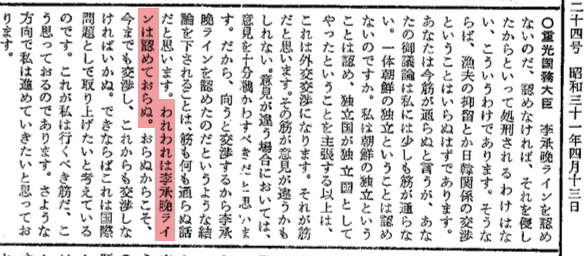 二十四号　昭和三十一年四月十三日
○重光国務大臣　李承晩ラインを認め
ないのだ、認めなければ、それを侵し
たからといつて処刑されるわけはな
い、こういうわけであります。そうな
らば、漁夫の抑留とか日韓関係の交渉
ということはいらぬはずであります。
あなたは今筋が通らぬと言うが、あな
たの御議論は私には少しも筋が通らな
い。一体朝鮮の独立ということは認め
ないのですか。私は朝鮮の独立という
ことは認め、独立国が独立国として
やつたということを主張する以上は、
これは外交交渉になります。それが筋
だと思います。その筋が意見が違うかも
しれない。意見が違う場合においては、
意見を十分戦わすべきだと思いま
す。だから、向うと交渉するから李承
晩ラインを認めたのだというような結
論を下されることは、筋も何も通らぬ話
だと思います。われわれは李承晩ライ
ンは認めておらぬ。おらぬからこそ、
今までも交渉し、これからも交渉しな
ければいかぬ。できならばこれは国際
問題として取り上げたいと考えている
のです。これが私は行くべき筋だ、こ
う思つておるのであります。さような
方向で私は進めていきたいと思つてお
ります。